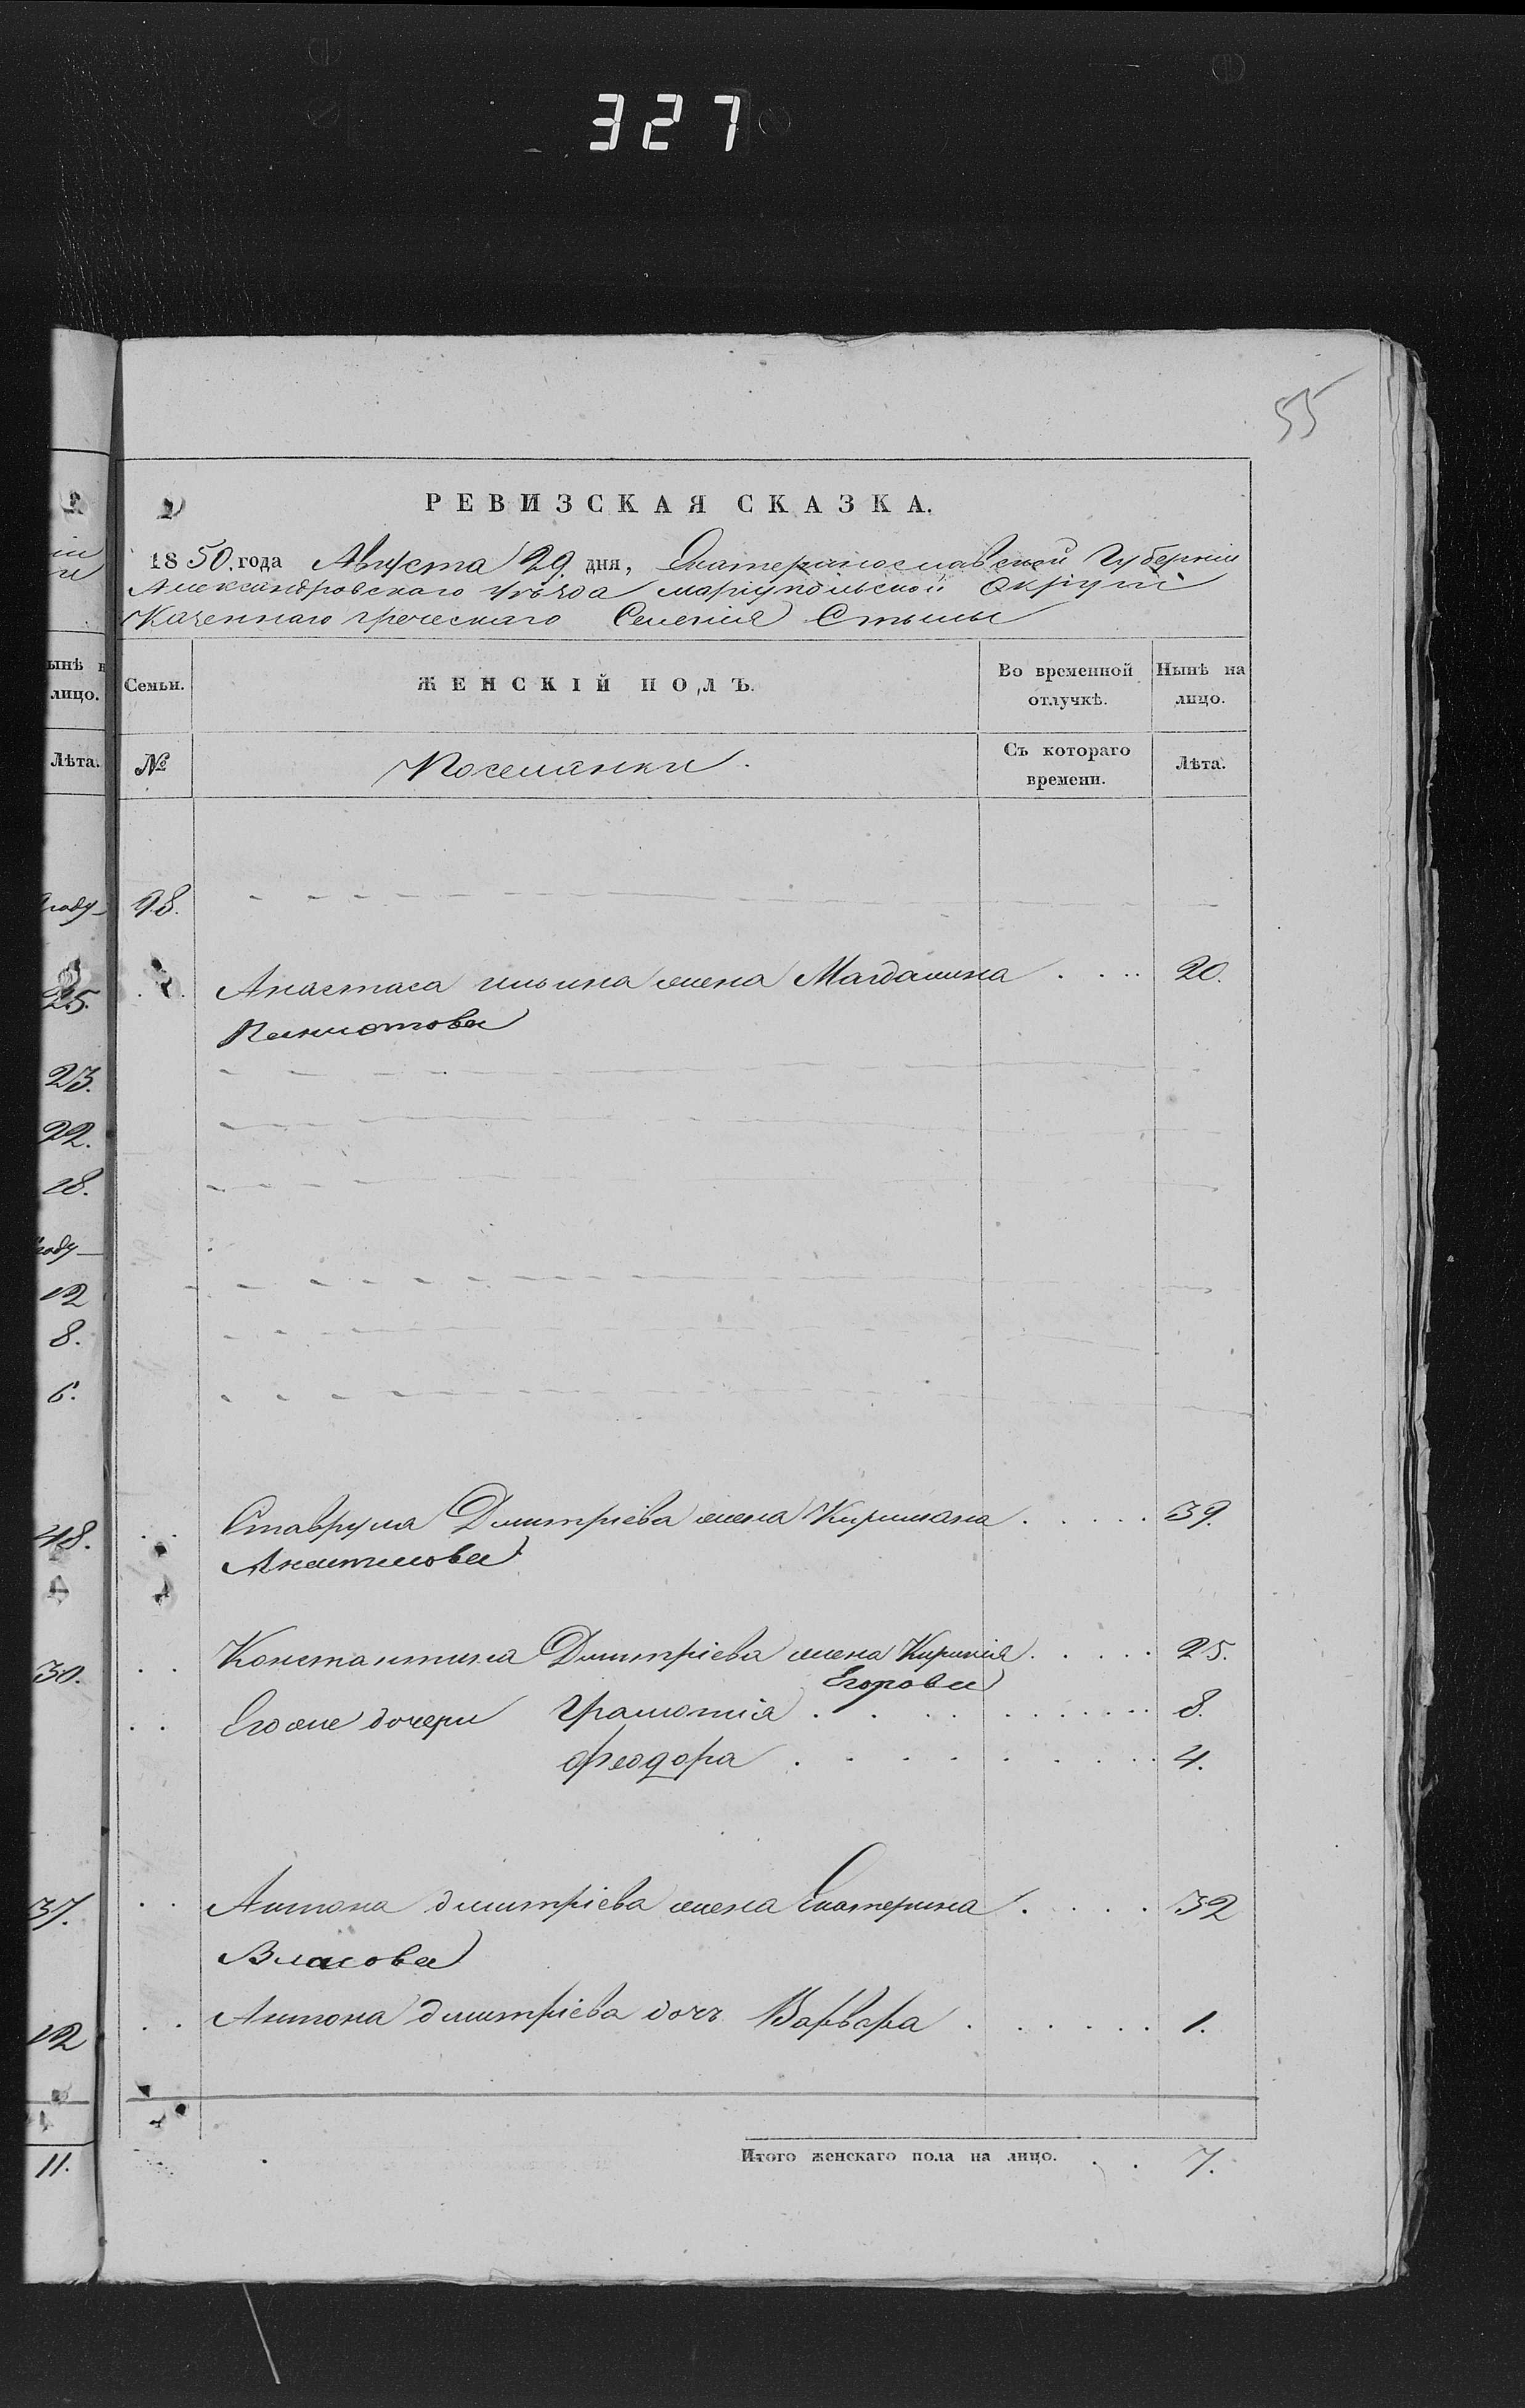 327
55
РЕВИЗСКАЯ СКАЗКА.
1850. года Августа 29. дня, Екатеринославской Губернии
Александровскаго уѣзда мариупольской Округи
Казеннаго греческаго Селения Стылы
Семьи.
ЖЕНСКІЙ ПОЛЪ.
Во временной отлучкѣ.
Нынѣ на лицо.
№
Поселянки.
Съ котораго времени.
Лѣта.
98.
Анастаса ильина жена Магдалина . . . . 20.
Ставрула Дмитріева жена Киріакана . . . . . 39.
Константина Дмитріева жена Киріакія . . . . . 25.
Егорова
Его же дочери 8.
Феодора . . . . . . . 4.
Антона дмитріева жена Екатерина . . . . 32
Власова
Антона дмитріева дочь Варвара . . . . . . 1.
Итого женскаго пола на лицо. . . 7.
ынѣ н
лицо.
Лѣта.
году
25.
23.
22.
18.
году
12
8.
6.
48.
30.
37.
12
11.